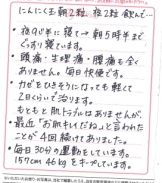 にんにく玉朝2粒、夜2粒 飲んで…
・夜9時半に寝て→朝5時まで
ぐっすり寝ています。
・頭痛・生理痛・腰痛も全く
ありません。毎日快便です。
・カゼをひきそうになっても軽くて
2日くらいで治ります。
・もともと肌トラブルはありませんが、
最近「お肌キレイだね」と言われた
ことが4回続けてありました。
・毎日30分の運動をしています。
157cm 46kgをキープしています。